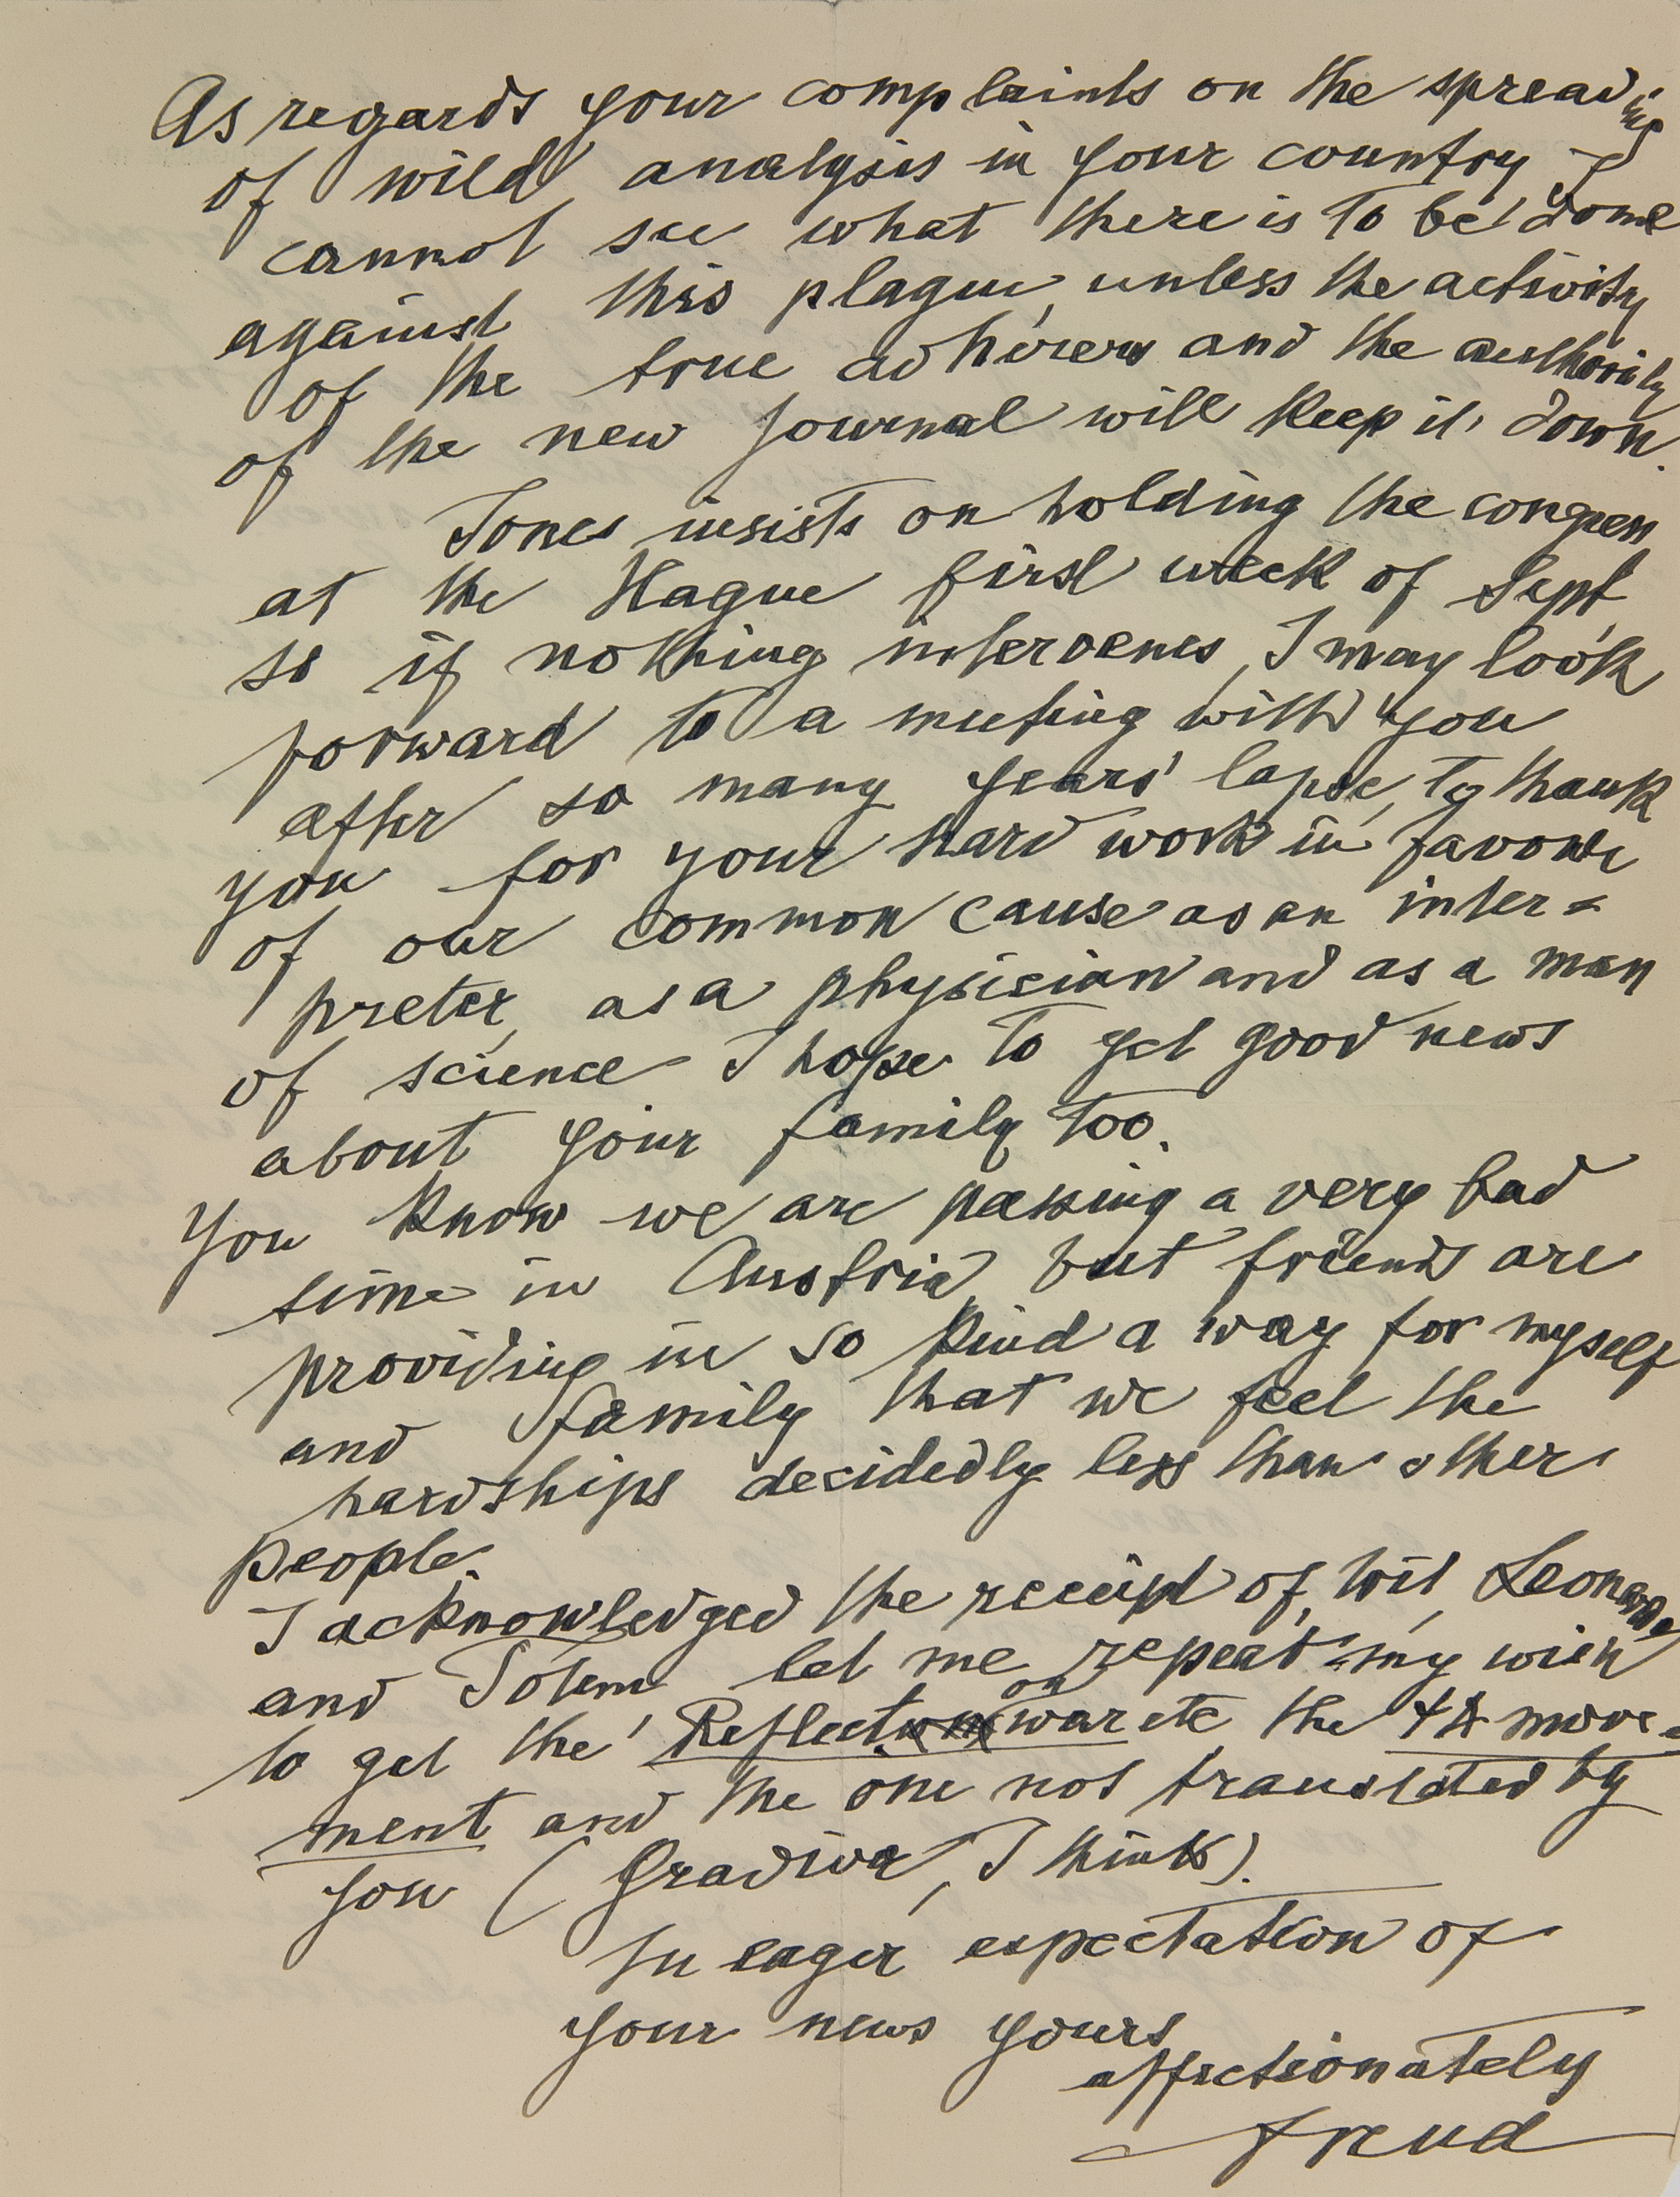 As regards your complaints on the spreading
of wild analysis in your country I
cannot see what there is to be done
against this plague, unless the activity
of the true adherers and the authority
of the new Journal will keep it down.
Jones insists on holding the congress
at the Hague first week of Sept.
so if nothing intervenes, I may look
forward to a meeting with you
after so many years' lapse, to thank
you for your hard work in favour
of our common cause as an inter=
preter, as a physician and as a man
of science I hope to get good news
about your family too.
You know we are passing a very bad
time in Austria, but friends are
providing in so kind a way for myself
and family that we feel the
hardships decidedly less than other
people.
I acknowledged the receipt of Wit, Leonardo
and Totem let me repeat my wish
to get the Reflect on war etc the ΨA move=
ment and the one not translated by
you (Gradiva, I think).
In eager expectation of
your news yours
affectionately
Freud